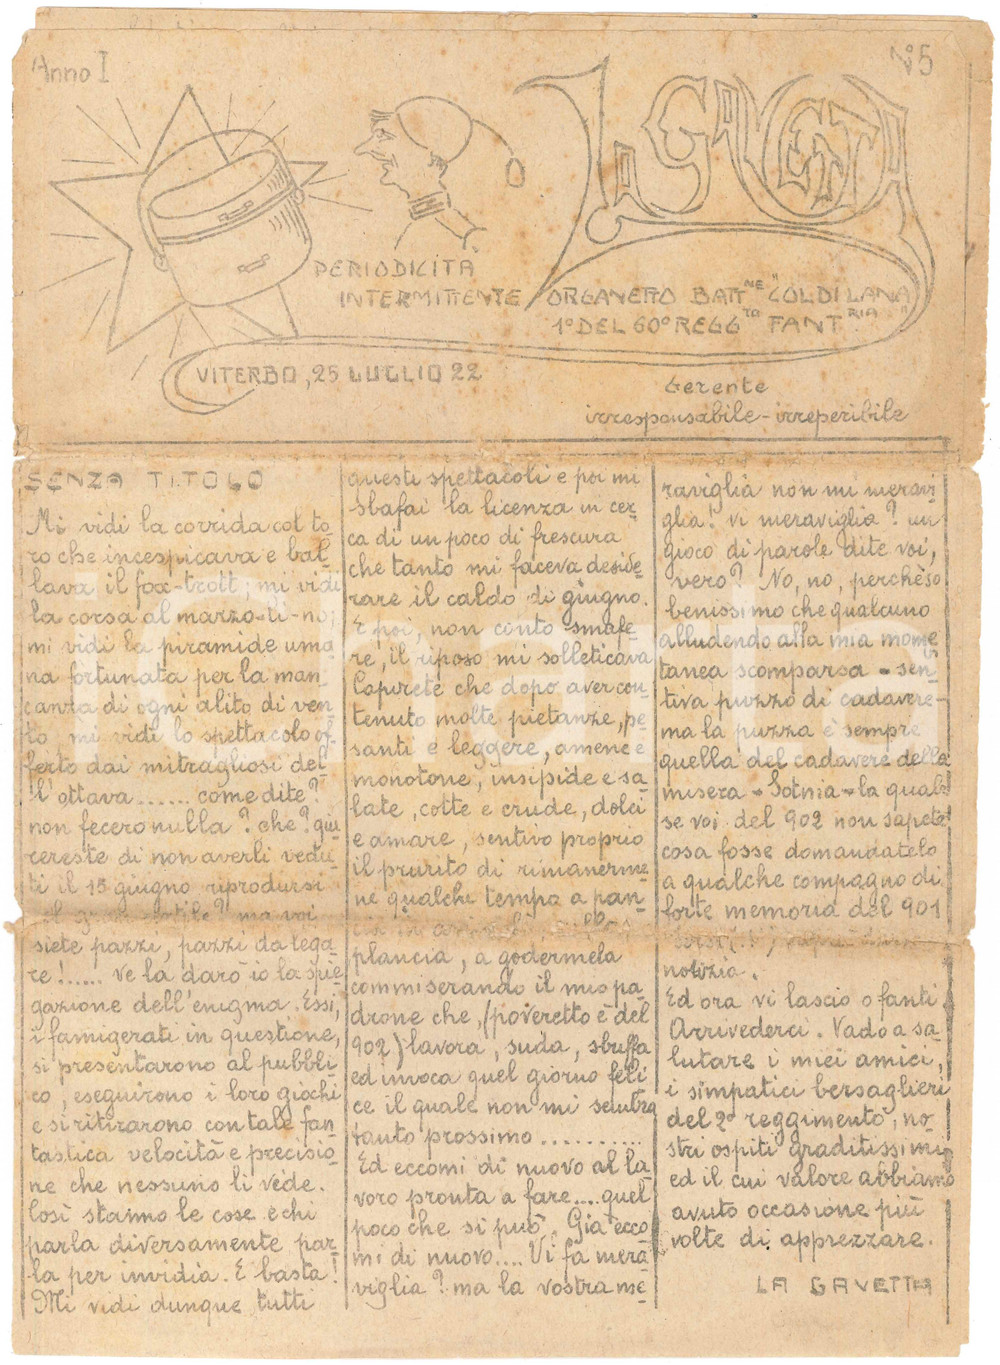 Anno I
N° 5
LA GAVETTA
PERIODICITÀ
INTERMITTENTE
ORGANETTO BATT.NE "COL DI LANA"
1° DEL 60° REGG.TO FANT.RIA
VITERBO, 25 LUGLIO 22
Gerente
irresponsabile - irreperibile
SENZA TITOLO
Mi vidi la corrida col to-
ro che incespicava e bal-
lava il fox-trott; mi vidi
la corsa al marzo-ti-no;
mi vidi la piramide uma-
na fortunata per la man-
canza di ogni alito di ven-
to; mi vidi lo spettacolo of-
ferto dai mitragliosi del-
l'ottava....... come dite?
non fecero nulla? che? giu-
rereste di non averli vedu-
ti il 15 giugno riprodursi
ma voi
siete pazzi, pazzi da lega-
re!...... Ve la darò io la spie-
gazione dell'enigma. Essi,
i famigerati in questione,
si presentarono al pubbli-
co, eseguirono i loro giochi
e si ritirarono con tale fan-
tastica velocità e precisio-
ne che nessuno li vede.
Così stanno le cose e chi
parla diversamente par-
la per invidia. E basta!
Mi vidi dunque tutti
questi spettacoli e poi mi
sbafai la licenza in cer-
ca di un poco di frescura
che tanto mi faceva deside-
rare il caldo di giugno.
E poi, non conto smafe-
re, il riposo mi solleticava
Capirete che dopo aver con-
tenuto molte pietanze, pe-
santi e leggere, amene e
monotone, insipide e sa-
late, cotte e crude, dolci
e amare, sentivo proprio
il prurito di rimanerme-
ne qualche tempo a pan-
plancia, a godermela
commiserando il mio pa-
drone che, (poveretto è del
902) lavora, suda, sbuffa
ed invoca quel giorno feli-
ce il quale non mi sembra
tanto prossimo..........
Ed eccomi di nuovo al la-
voro pronta a fare.... quel
poco che si può. Già ecco-
mi di nuovo.... Vi fa mera-
viglia? ma la vostra me-
raviglia non mi meravi-
glia! Vi meraviglia? un
gioco di parole dite voi,
vero? No, no, perchè so
benissimo che qualcuno
alludendo alla mia mome-
tanea scomparsa - sen-
tiva puzzo di cadavere -
ma la puzza è sempre
quella del cadavere della
misera - Sotnia - la quale
se voi del 902 non sapete
cosa fosse domandatelo
a qualche compagno di
forte memoria del 901
notizia.
Ed ora vi lascio o fanti
Arrivederci. Vado a sa-
lutare i miei amici,
i simpatici bersaglieri
del 2° reggimento, no-
stri ospiti graditissimi
ed il cui valore abbiamo
avuto occasione più
volte di apprezzare.
LA GAVETTA